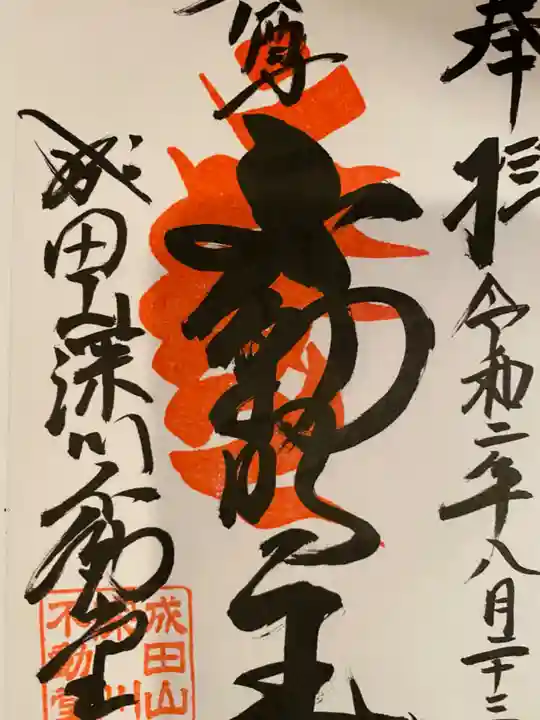 奉拝 令和二年八月二十二
尊 不動明王
成田山深川不動堂
成田山
深川
不動堂